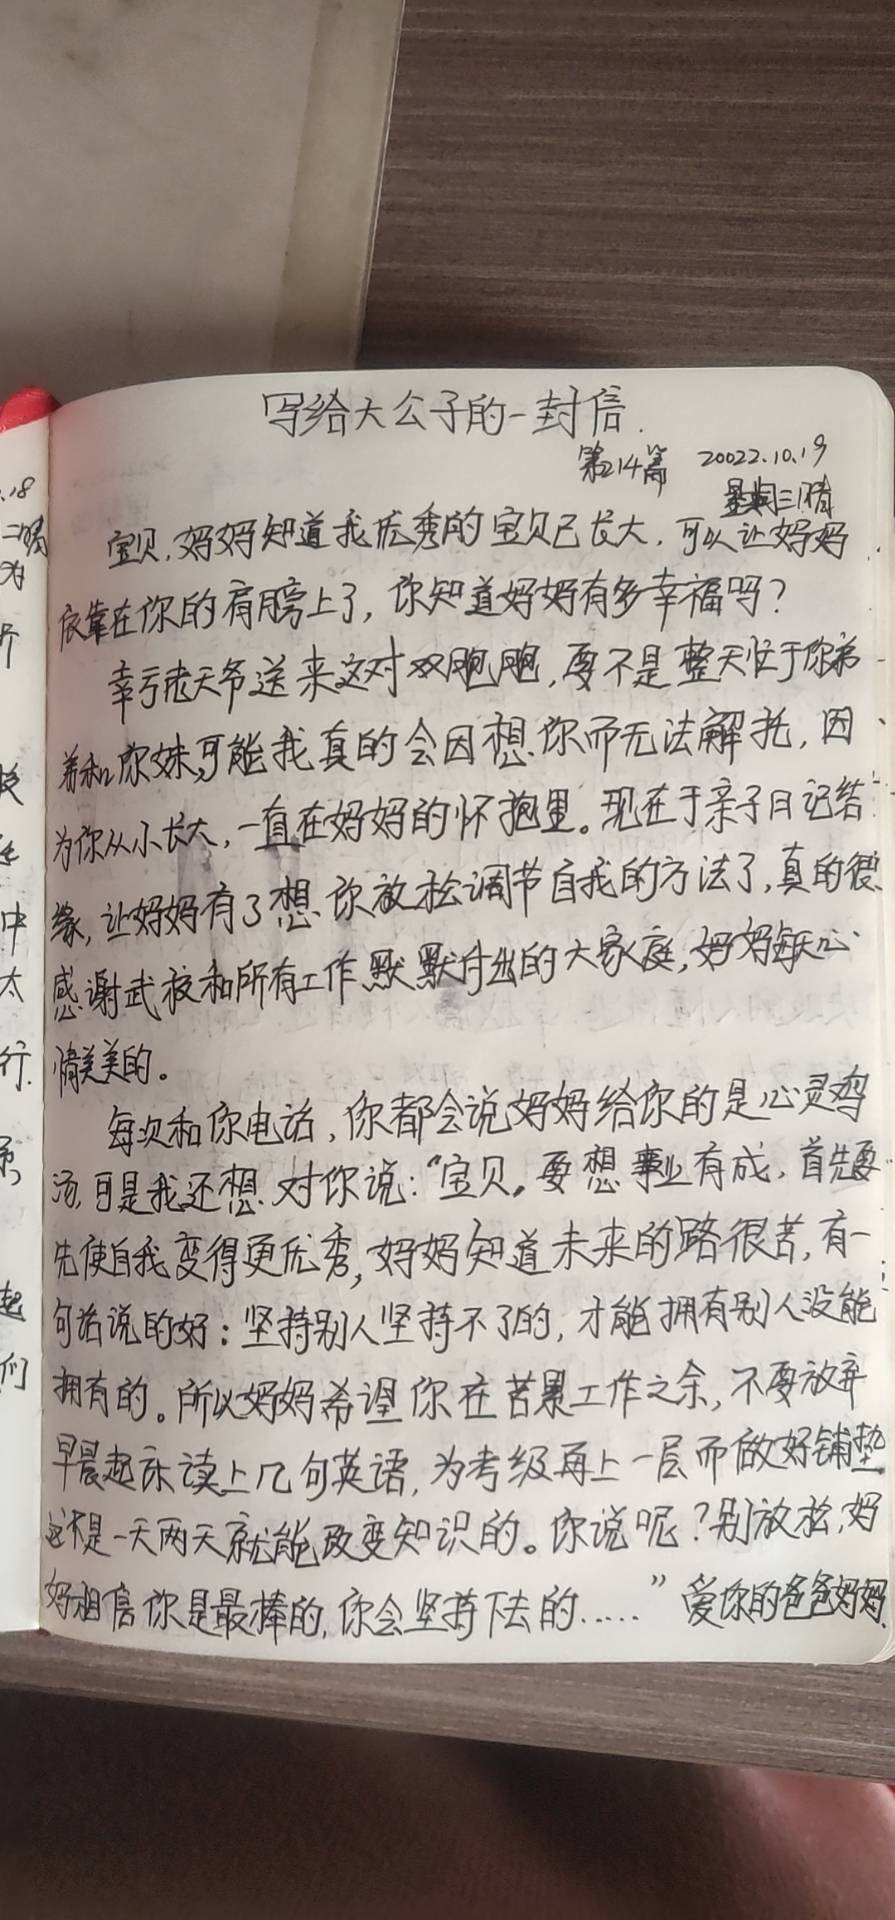 写给大公子的一封信.
第214篇 20022.10.19
星期三 晴
宝贝,妈妈知道我优秀的宝贝已长大,可以让妈妈
依靠在你的肩膀上了,你知道妈妈有多幸福吗?
幸亏老天爷送来这对双胞胎,要不是整天忙于你弟
弟和你妹,可能我真的会因想你而无法解托,因
为你从小长大,一直在妈妈的怀抱里。现在于亲子日记结
缘,让妈妈有了想你放松调节自我的方法了,真的很
感谢武校和所有工作默默付出的大家庭,妈妈每天心
情美美的。
每次和你电话,你都会说妈妈给你的是心灵鸡
汤,可是我还想对你说:“宝贝,要想事业有成,首先要
先使自我变得更优秀,妈妈知道未来的路很苦,有一
句话说的好:坚持别人坚持不了的,才能拥有别人没能
拥有的。所以妈妈希望你在苦累工作之余,不要放弃
早晨起床读上几句英语,为考级再上一层而做好铺垫
这不是一天两天就能改变知识的。你说呢?别放松,妈
妈相信你是最棒的,你会坚持下去的……” 爱你的爸爸妈妈.
.18
二晴
中
太
行.
起
们